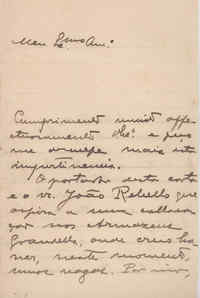 Meu Exmo Amº
Cumprimento muito affe-
ctuosamente e peço
me desculpe mais esta
impertinencia.
O portador desta carta
é o sr. João Rebello que
aspira a uma colloca-
ção nos Armazens
Grandella, onde creio ha-
ver, neste momento,
umas vagas. Por isso,